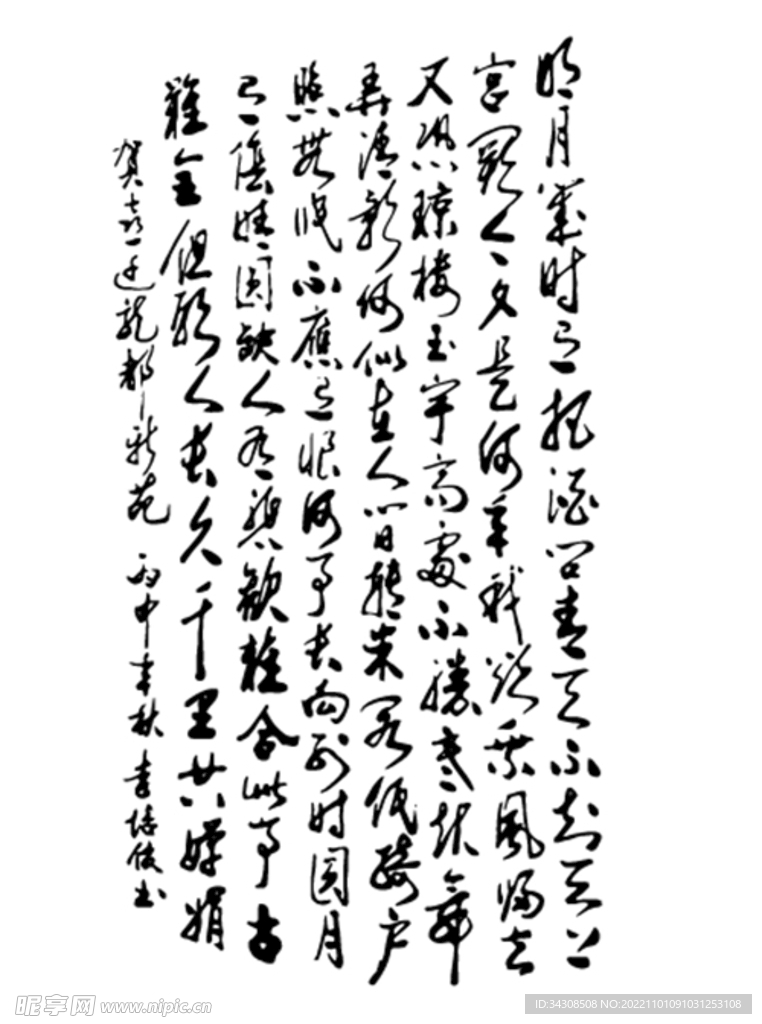 明月幾时有把酒问青天不知天上
宫阙今夕是何年我欲乘風归去
又恐琼楼玉宇高處不勝寒起舞
弄清影何似在人间转朱阁低绮户
照無眠不應有恨何事长向别时圆月
有陰晴圆缺人有悲歡離合此事古
難全但願人长久千里共嬋娟
賀喜迁龍都新苑 丙申年秋 李培俊书
昵享网 www.nipic.cn
ID:34308508 NO:20221101091031253108